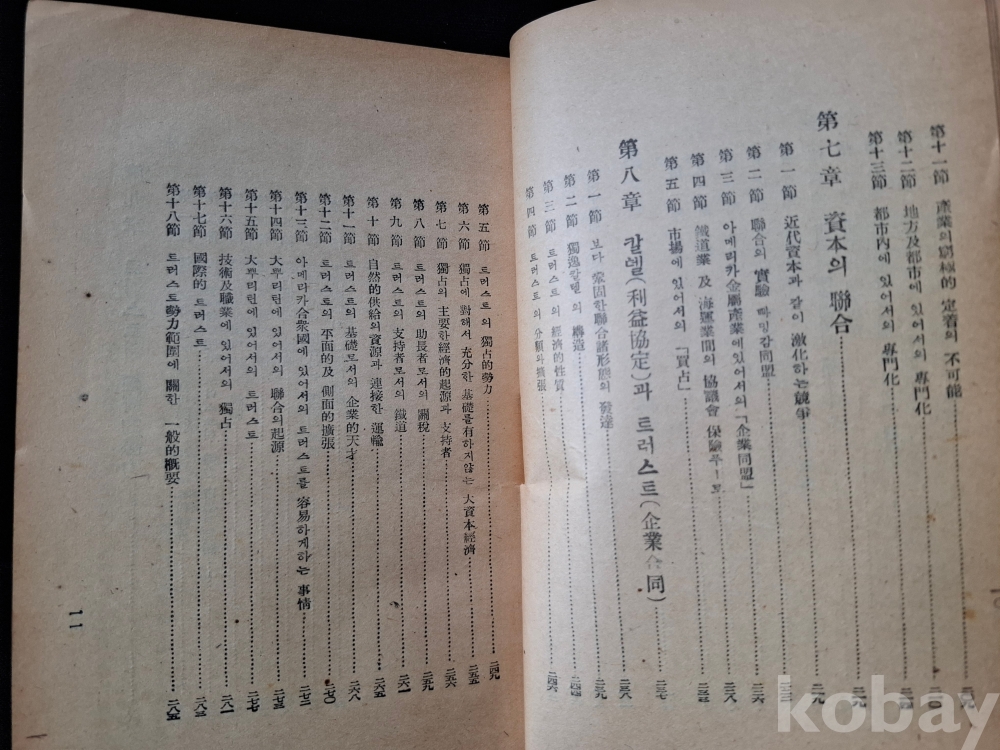 第十一節 產業의 窮極的 定着의 不可能
第十二節 地方及都市에 있어서의 專門化
第十三節 都市內에 있어서의 專門化
第七章 資本의 聯合
第一節 近代資本과 같이 激化하는 競爭
第二節 聯合의 實驗 빠밍감同盟
第三節 아메리카金屬產業에있어서의「企業同盟」
第四節 鐵道業 及 海運業間의 協議會 保險
第五節 市場에 있어서의「買占」
第八章 칼텔(利益協定)과 트러스트(企業合同)
第一節 보다 鞏固한聯合諸形態의 發達
第二節 獨逸칼텔의 構造
第三節 트러스트의 經濟的性質
第四節 트러스트의 分類와擴張 二四六
第五節 트러스트의 獨占的勢力 二四九
第六節 獨占에 對해서 充分한 基礎를有하지않는 大資本經濟 二五五
第七節 獨占의 主要한經濟的起源과 支持者 二五六
第八節 트러스트의 助長者로서의 關稅 二五九
第九節 트러스트의 支持者로서의 鐵道 二六一
第十節 自然的供給의資源과 連接한 運輸 二六五
第十一節 트러스트의 基礎로서의 企業的天才 二六八
第十二節 트러스트의 平面的及 側面的擴張 二七〇
第十三節 아메리카合衆國에 있어서의 트러스트를 容易하게하는 事情 二七二
第十四節 大뿌리턴에있어서의 聯合의起源 二七五
第十五節 大뿌리턴에있어서의 트러스트 二七七
第十六節 技術及職業에 있어서의 獨占 二八一
第十七節 國際的 트러스트 二八三
第十八節 트러스트勢力範圍에 關한 一般的概要 二八五
11
kobay